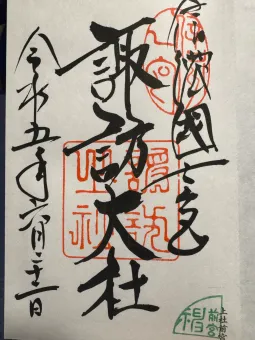 信濃國一之宮
諏訪大社
令和五年六月二十二日
諏訪大社
上社前宮
前宮